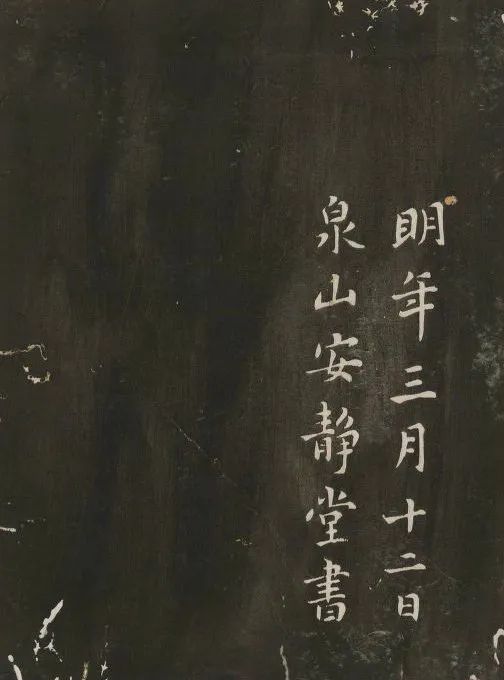 明年三月十二日
泉山安靜堂書